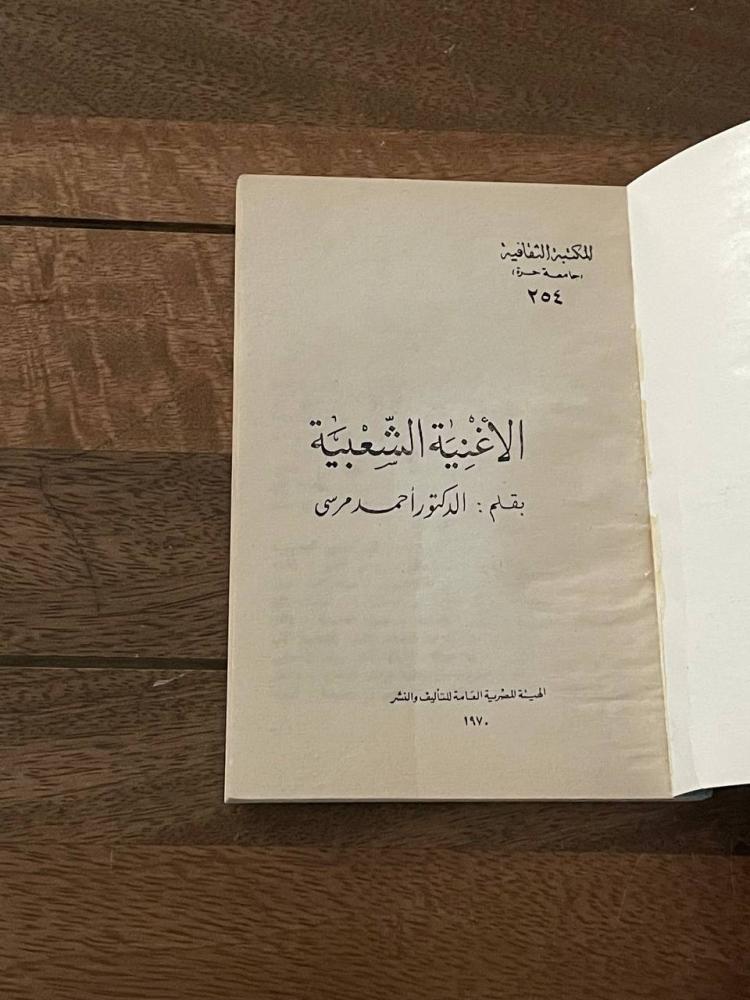 المكتبة الثقافية
(جامعة حرة)
٢٥٤
الأُغْنِيَة الشَّعْبِيَّة
بقلم : الدكتور أحمد مرسى
الهيئة المصرية العامة للتأليف والنشر
١٩٧٠